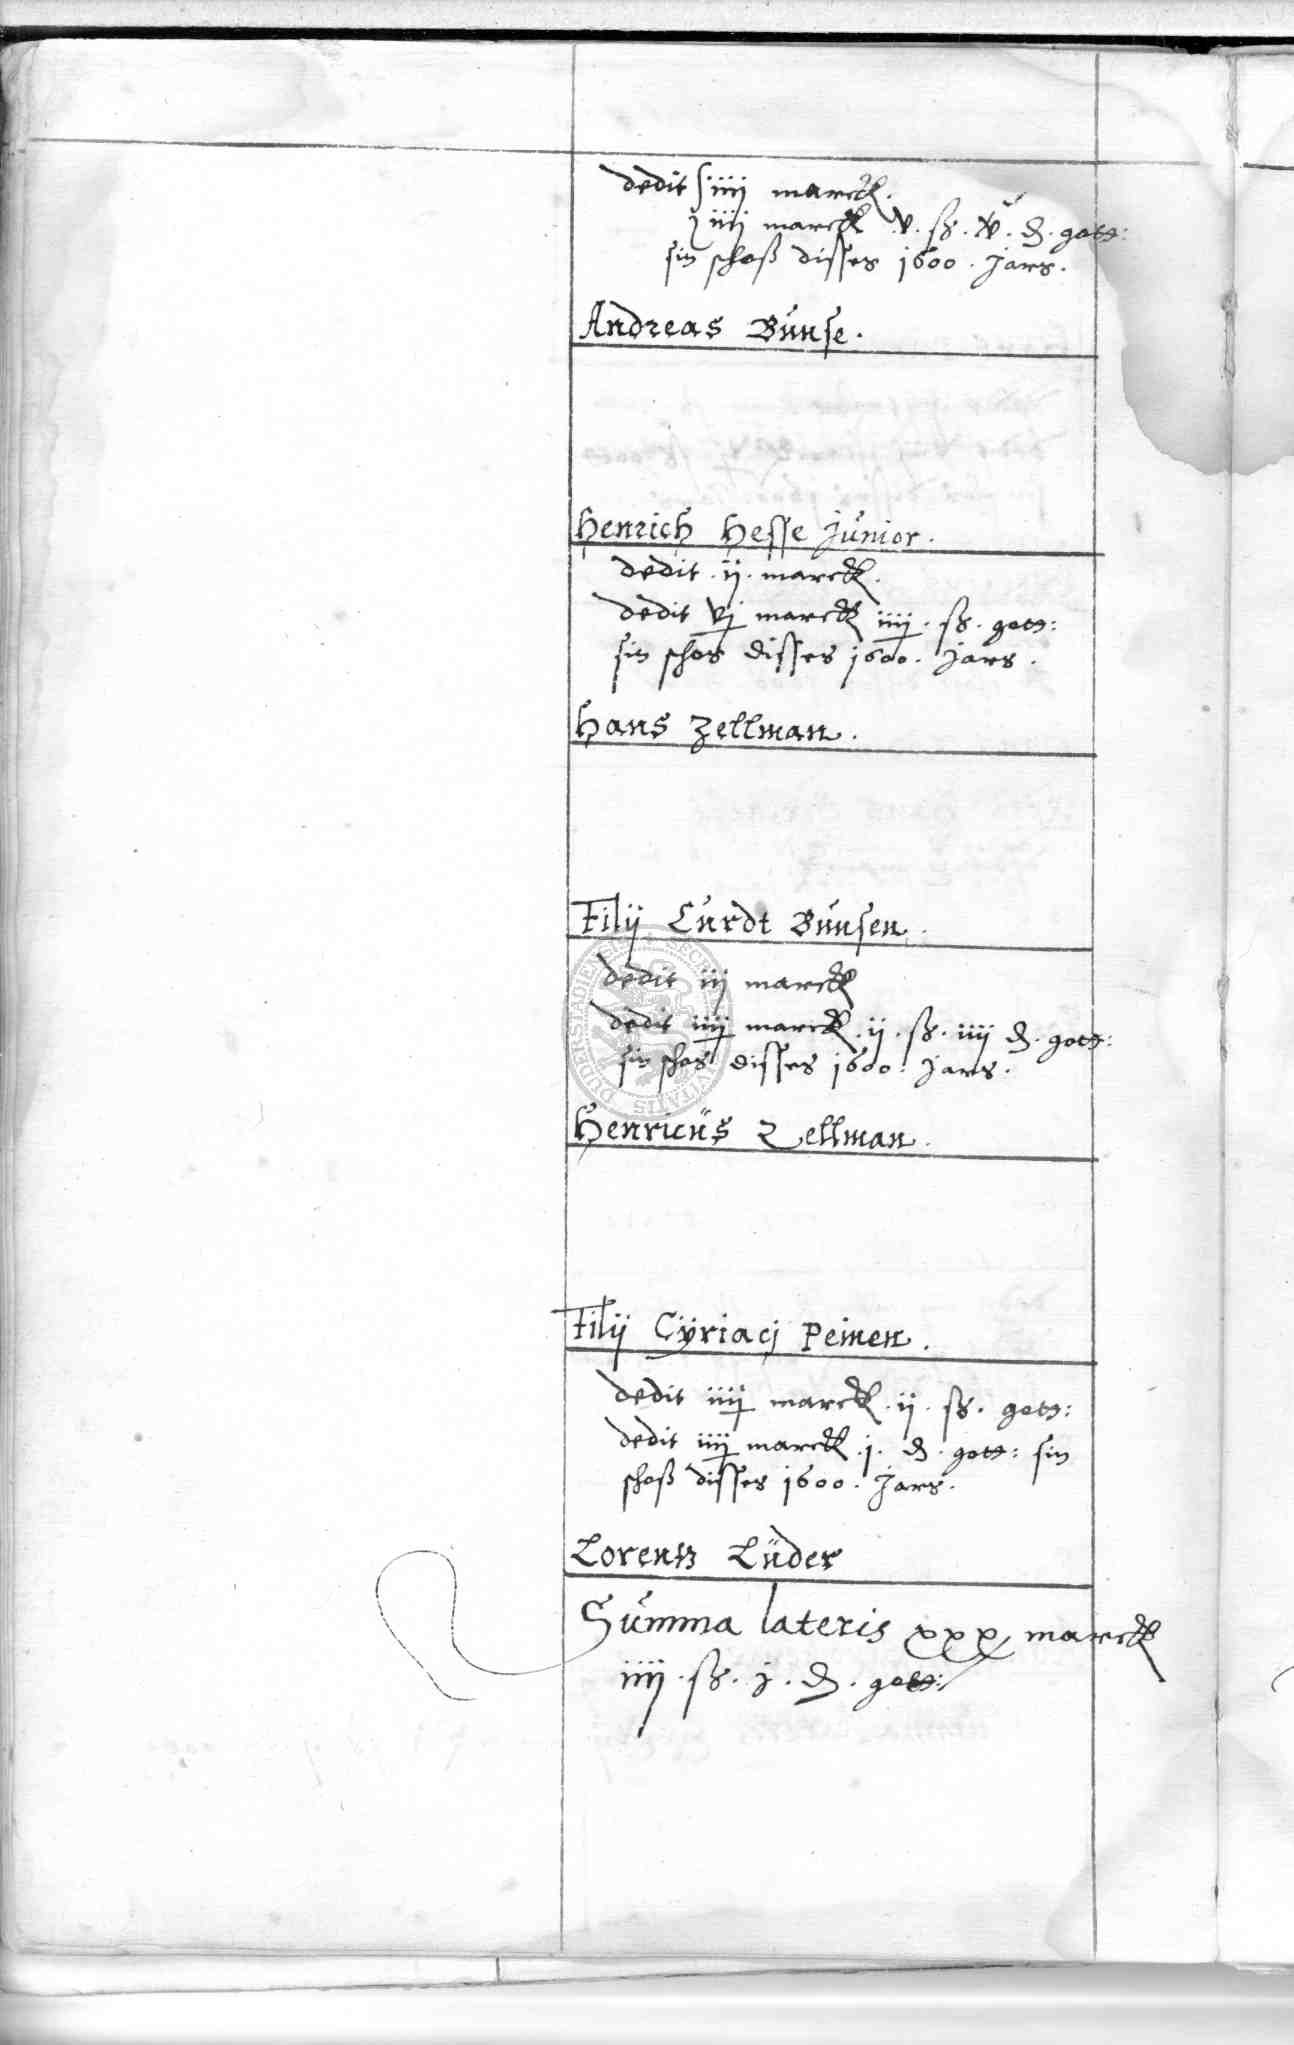 dedit iiij marck.
iiij marck v. ß. v. d. gott:
sin schoß disses 1600. Jars.
Andreas Bunse.
Henrich Hesse Junior.
dedit. ij. marck.
dedit vj marck iiij. ß. gott:
sin schos disses 1600. Jars.
Hans Zellman.
Filij Curdt Bunsen.
dedit iij marck
dedit iiij marck. ij. ß. iiij d. gott:
sin schos disses 1600. Jars.
Henricus Zellman.
Filij Cyriacj Peinen.
dedit iiij marck. ij. ß. gott:
dedit iiij marck. j. d. gott: sin
schoß disses 1600. Jars.
Lorentz Lüder
Summa lateris xxx marck
iiij. ß. j. d. gott: